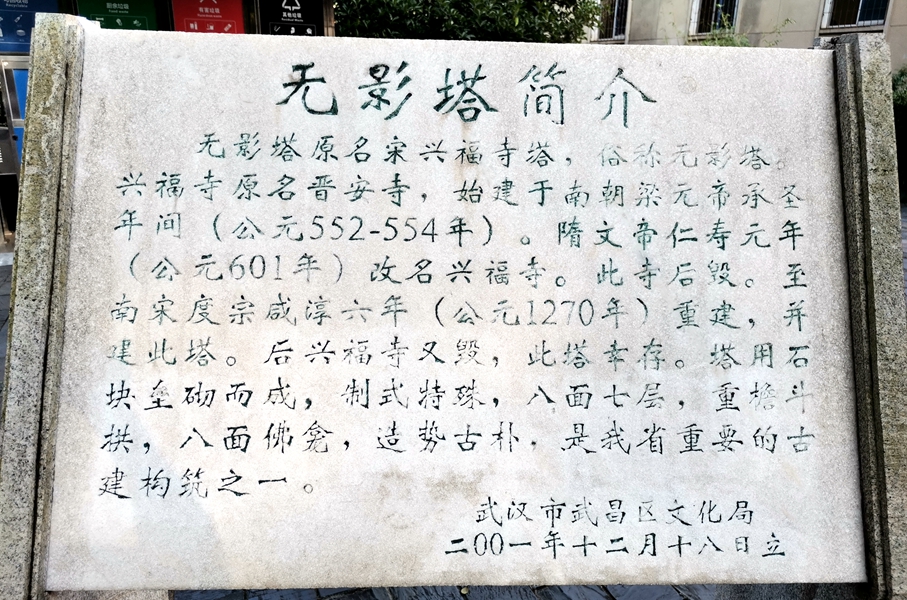 厨余垃圾
有害垃圾
其他垃圾
无影塔简介
无影塔原名宋兴福寺塔，俗称无影塔。
兴福寺原名晋安寺，始建于南朝梁元帝承圣
年间（公元552-554年）。隋文帝仁寿元年
（公元601年）改名兴福寺。此寺后毁。至
南宋度宗咸淳六年（公元1270年）重建，并
建此塔。后兴福寺又毁，此塔幸存。塔用石
块垒砌而成，制式特殊，八面七层，重檐斗
拱，八面佛龛，造势古朴，是我省重要的古
建构筑之一。
武汉市武昌区文化局
二00一年十二月十八日立